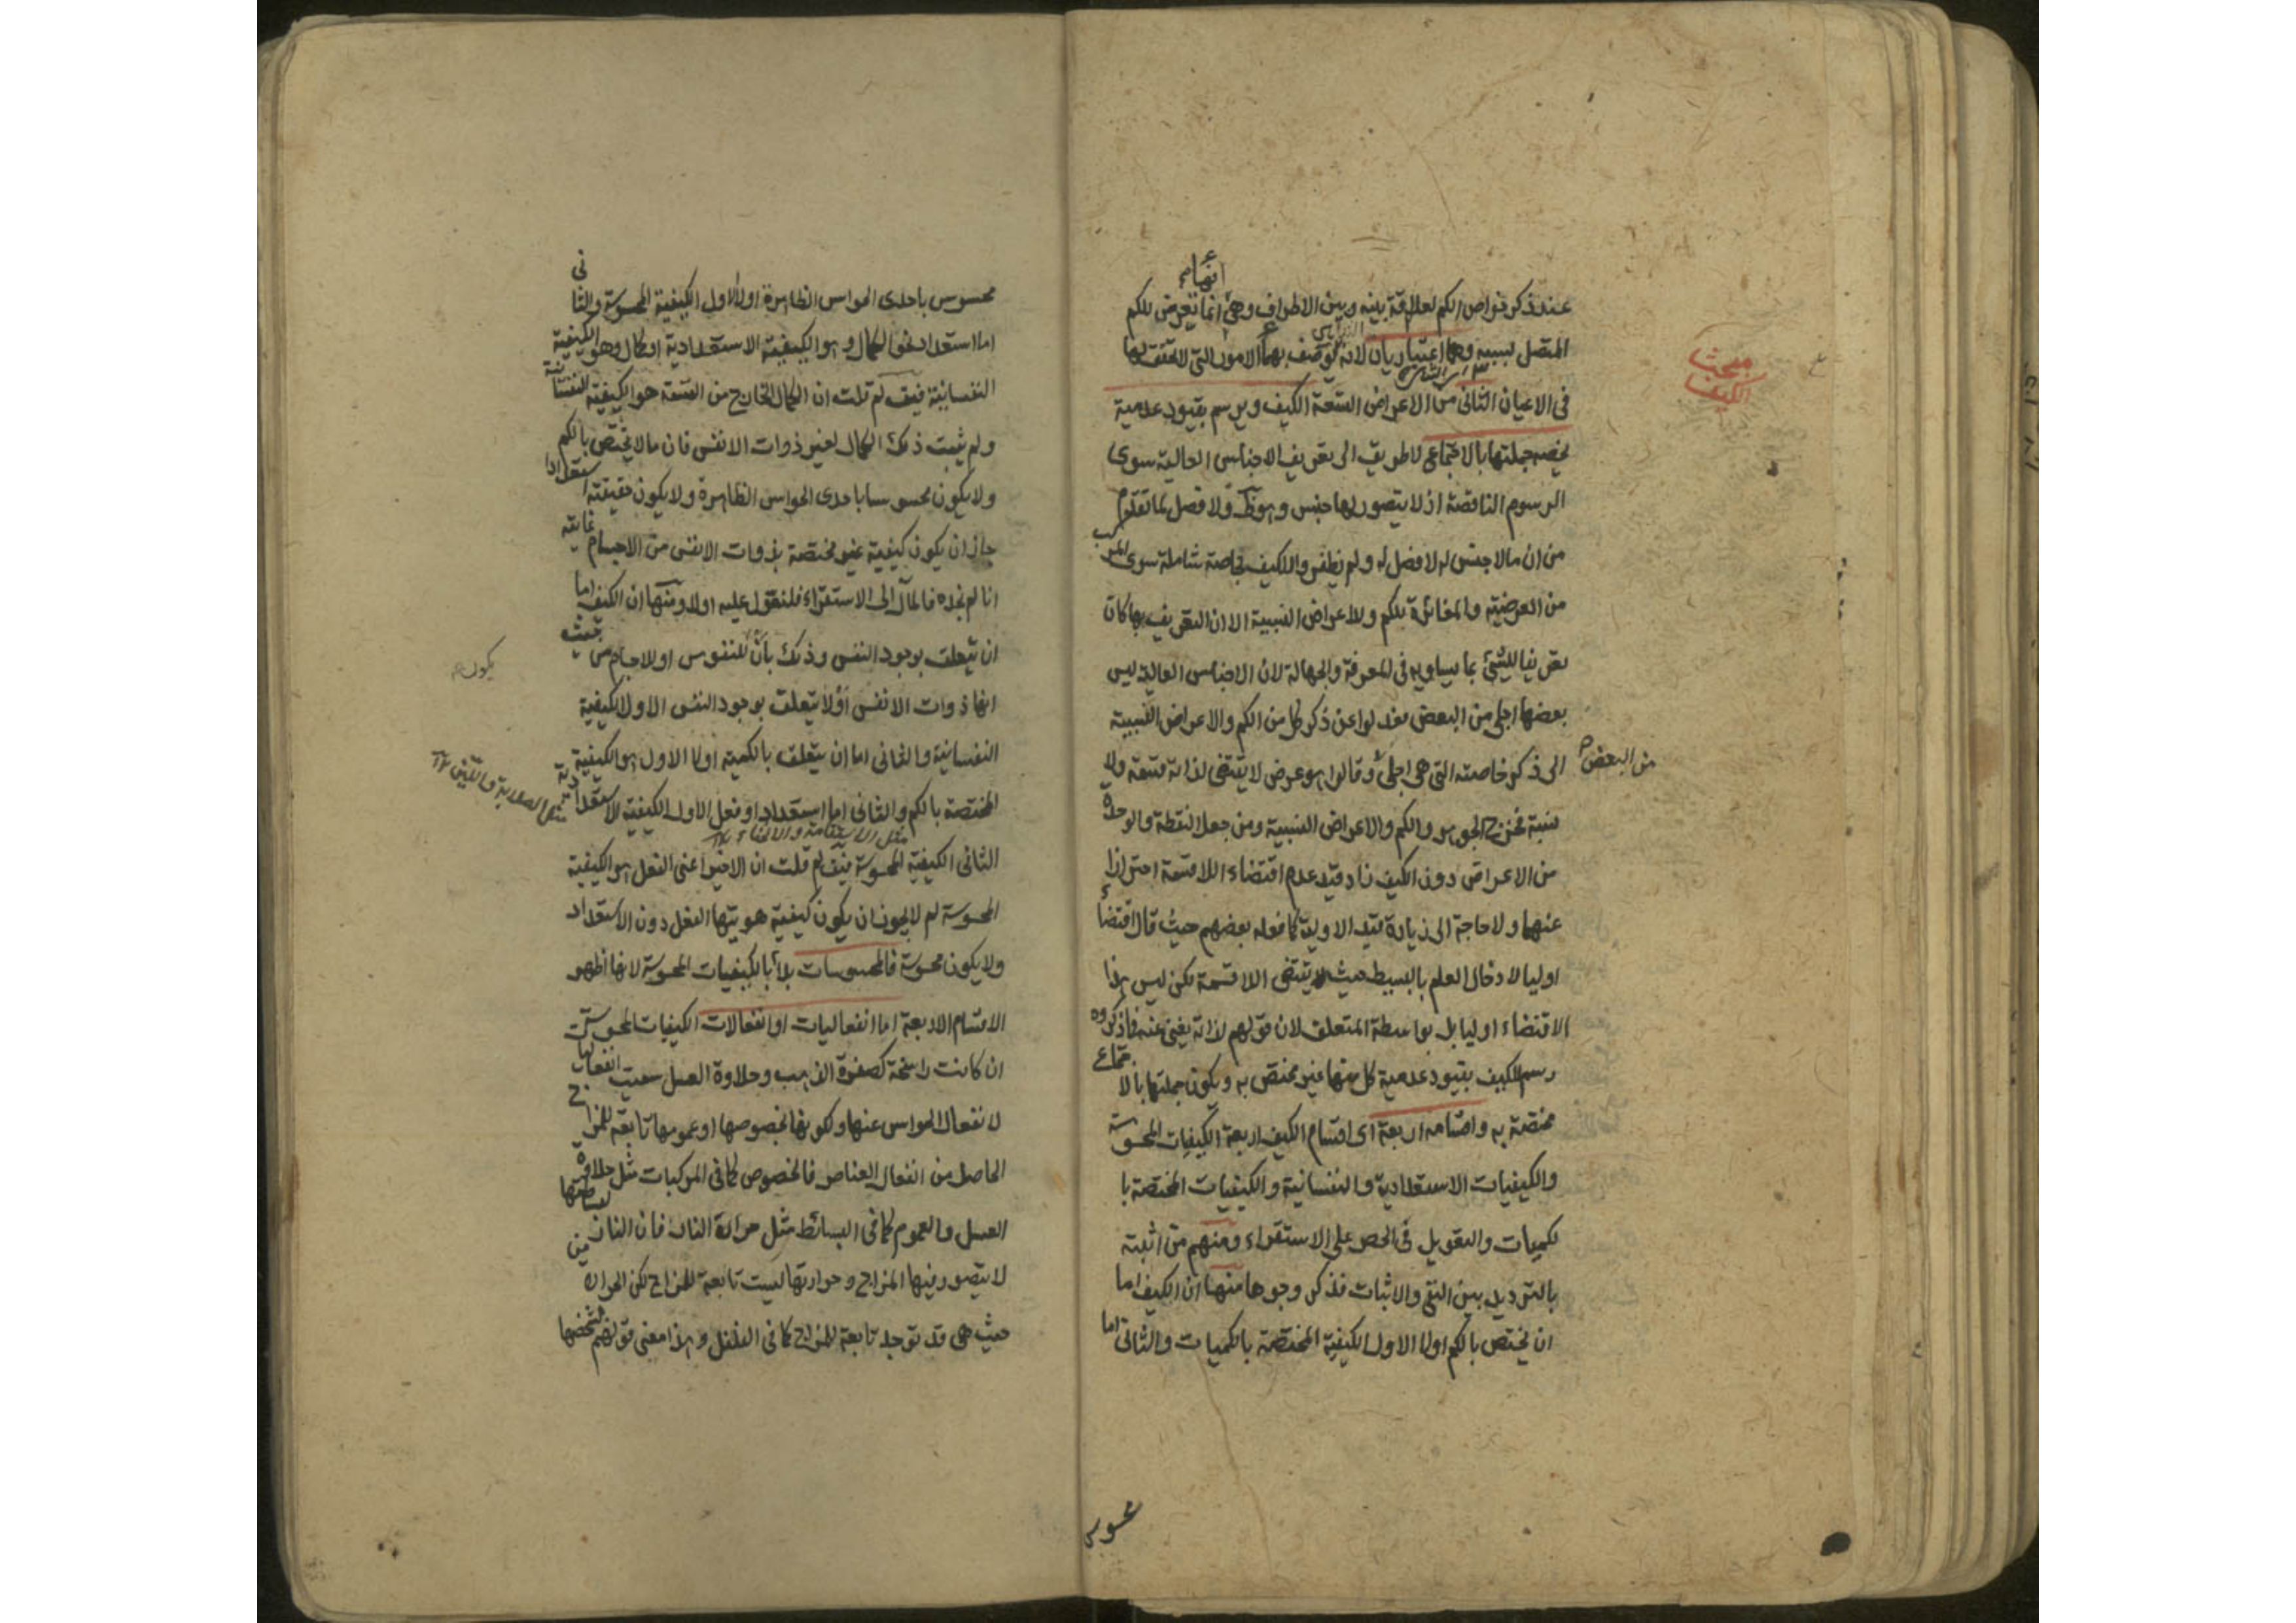 مبحث
الكيف
عند ذكر خواص الكم لعلاقة بينه وبين الاطراف وهى انما تعرض للكم
المتصل لسببه وهما اعتباريان لانه توصف بهما الامور التى لا تحقق لها
فى الاعيان الثانى من الاعراض التسعة الكيف ويرسم بقيود عدمية
يخصه جملتها بالاجتماع لا طريق الى تعريف الاجناس العالية سوى
الرسوم الناقصة اذ لا يتصور لها جنس وهو ظ ولا فصل لما تقدم
من ان ما لا جنس له لا فصل له ولم نظفر واللكيف بخاصة شاملة سوى المركب
من العرضية والمغائرة للكم وللاعراض النسبية الا ان التعريف بها كان
تعريفا للشئ بما يساويه فى المعرفة والجهالة لان الاجناس العالية ليس
بعضها اجلى من البعض فعدلوا عن ذكر كل من الكم والاعراض النسبية
الى ذكر خاصته التى هى اجلى وقالوا هو عرض لا يقتضى لذاته قسمة ولا
من البعض
نسبة فخرج الجوهر والكم والاعراض النسبية ومن جعل النقطة والوحدة
من الاعراض دون الكيف زاد قيد عدم اقتضاء اللاقسمة احترازا
عنهما ولا حاجة الى زيادة قيد الاولية كما فعله بعضهم حيث قال اقتضاء
اوليا لادخال العلم بالبسيط حيث يقتضى اللاقسمة لكن ليس هذا
الاقتضاء اوليا بل بواسطة المتعلق لان قولهم لذاته يغنى عنه فاذكروه
رسم للكيف بقيود عدمية كل منها غير مختص به ويكون جملتها بالاجتماع
مختصة به واقسامه اربعة اى اقسام الكيف اربعة الكيفيات المحسوسة
والكيفيات الاستعدادية والنفسانية والكيفيات المختصة با
لكميات والتعويل فى الحصر على الاستقراء ومنهم من اثبته
بالترديد بين النفى والاثبات فذكر وجوها منها ان الكيف اما
ان يختص بالكم اولا الاول الكيفية المختصة بالكميات والثانى اما
محسوس
محسوس باحدى الحواس الظاهرة اولا الاول الكيفية المحسوسة والثانى
اما استعداد نحو الكمال وهو الكيفية الاستعدادية او كمال وهو الكيفية
النفسانية فيق لم قلت ان الكمال الخارج من القسمة هو الكيفية النفسانية
ولم يثبت ذلك الكمال لغير ذوات الانفس فان ما لا يختص بالكم
ولا يكون محسوسا باحدى الحواس الظاهرة ولا يكون حقيقته استعدادا
جاز ان يكون كيفية غير مختصة بذوات الانفس من الاجسام غايته
انا لم نجده فالمآل الى الاستقراء فلنقول عليه اولا ومنها ان الكيف اما
ان يتعلق بوجود النفس وذلك بان للنفوس او للاجسام من حيث
يكون
انها ذوات الانفس او لا يتعلق بوجود النفس الاول الكيفية
النفسانية والثانى اما ان يتعلق بالكمية اولا الاول هو الكيفية
المختصة بالكم والثانى اما استعداد او فعل الاول الكيفية الاستعدادية
مثل الصلابة واللين
مثل الاستقامة والانحناء
الثانى الكيفية المحسوسة فيق لم قلت ان الاخير اعنى الفعل هو الكيفية
المحسوسة لم لا يجوز ان يكون كيفية هويتها الفعل دون الاستعداد
ولا يكون محسوسة فالمحسوسات بدأ بالكيفيات المحسوسة لانها اظهر
الاقسام الاربعة اما انفعاليات او انفعالات الكيفيات المحسوسة
ان كانت راسخة كصفرة الذهب وحلاوة العسل سميت انفعاليات
لانفعال الحواس عنها ولكونها بخصوصها او عمومها تابعة للمزاج
الحاصل من انفعال العناصر فالخصوص كما فى المركبات مثل حلاوة
العسل والعموم كما فى البسائط مثل حرارة النار فان النار لبساطتها
لا يتصور فيها المزاج وحرارتها ليست تابعة للمزاج لكن الحرارة من
حيث هى قد توجد تابعة للمزاج كما فى الفلفل وهذا معنى قولهم لشخصها